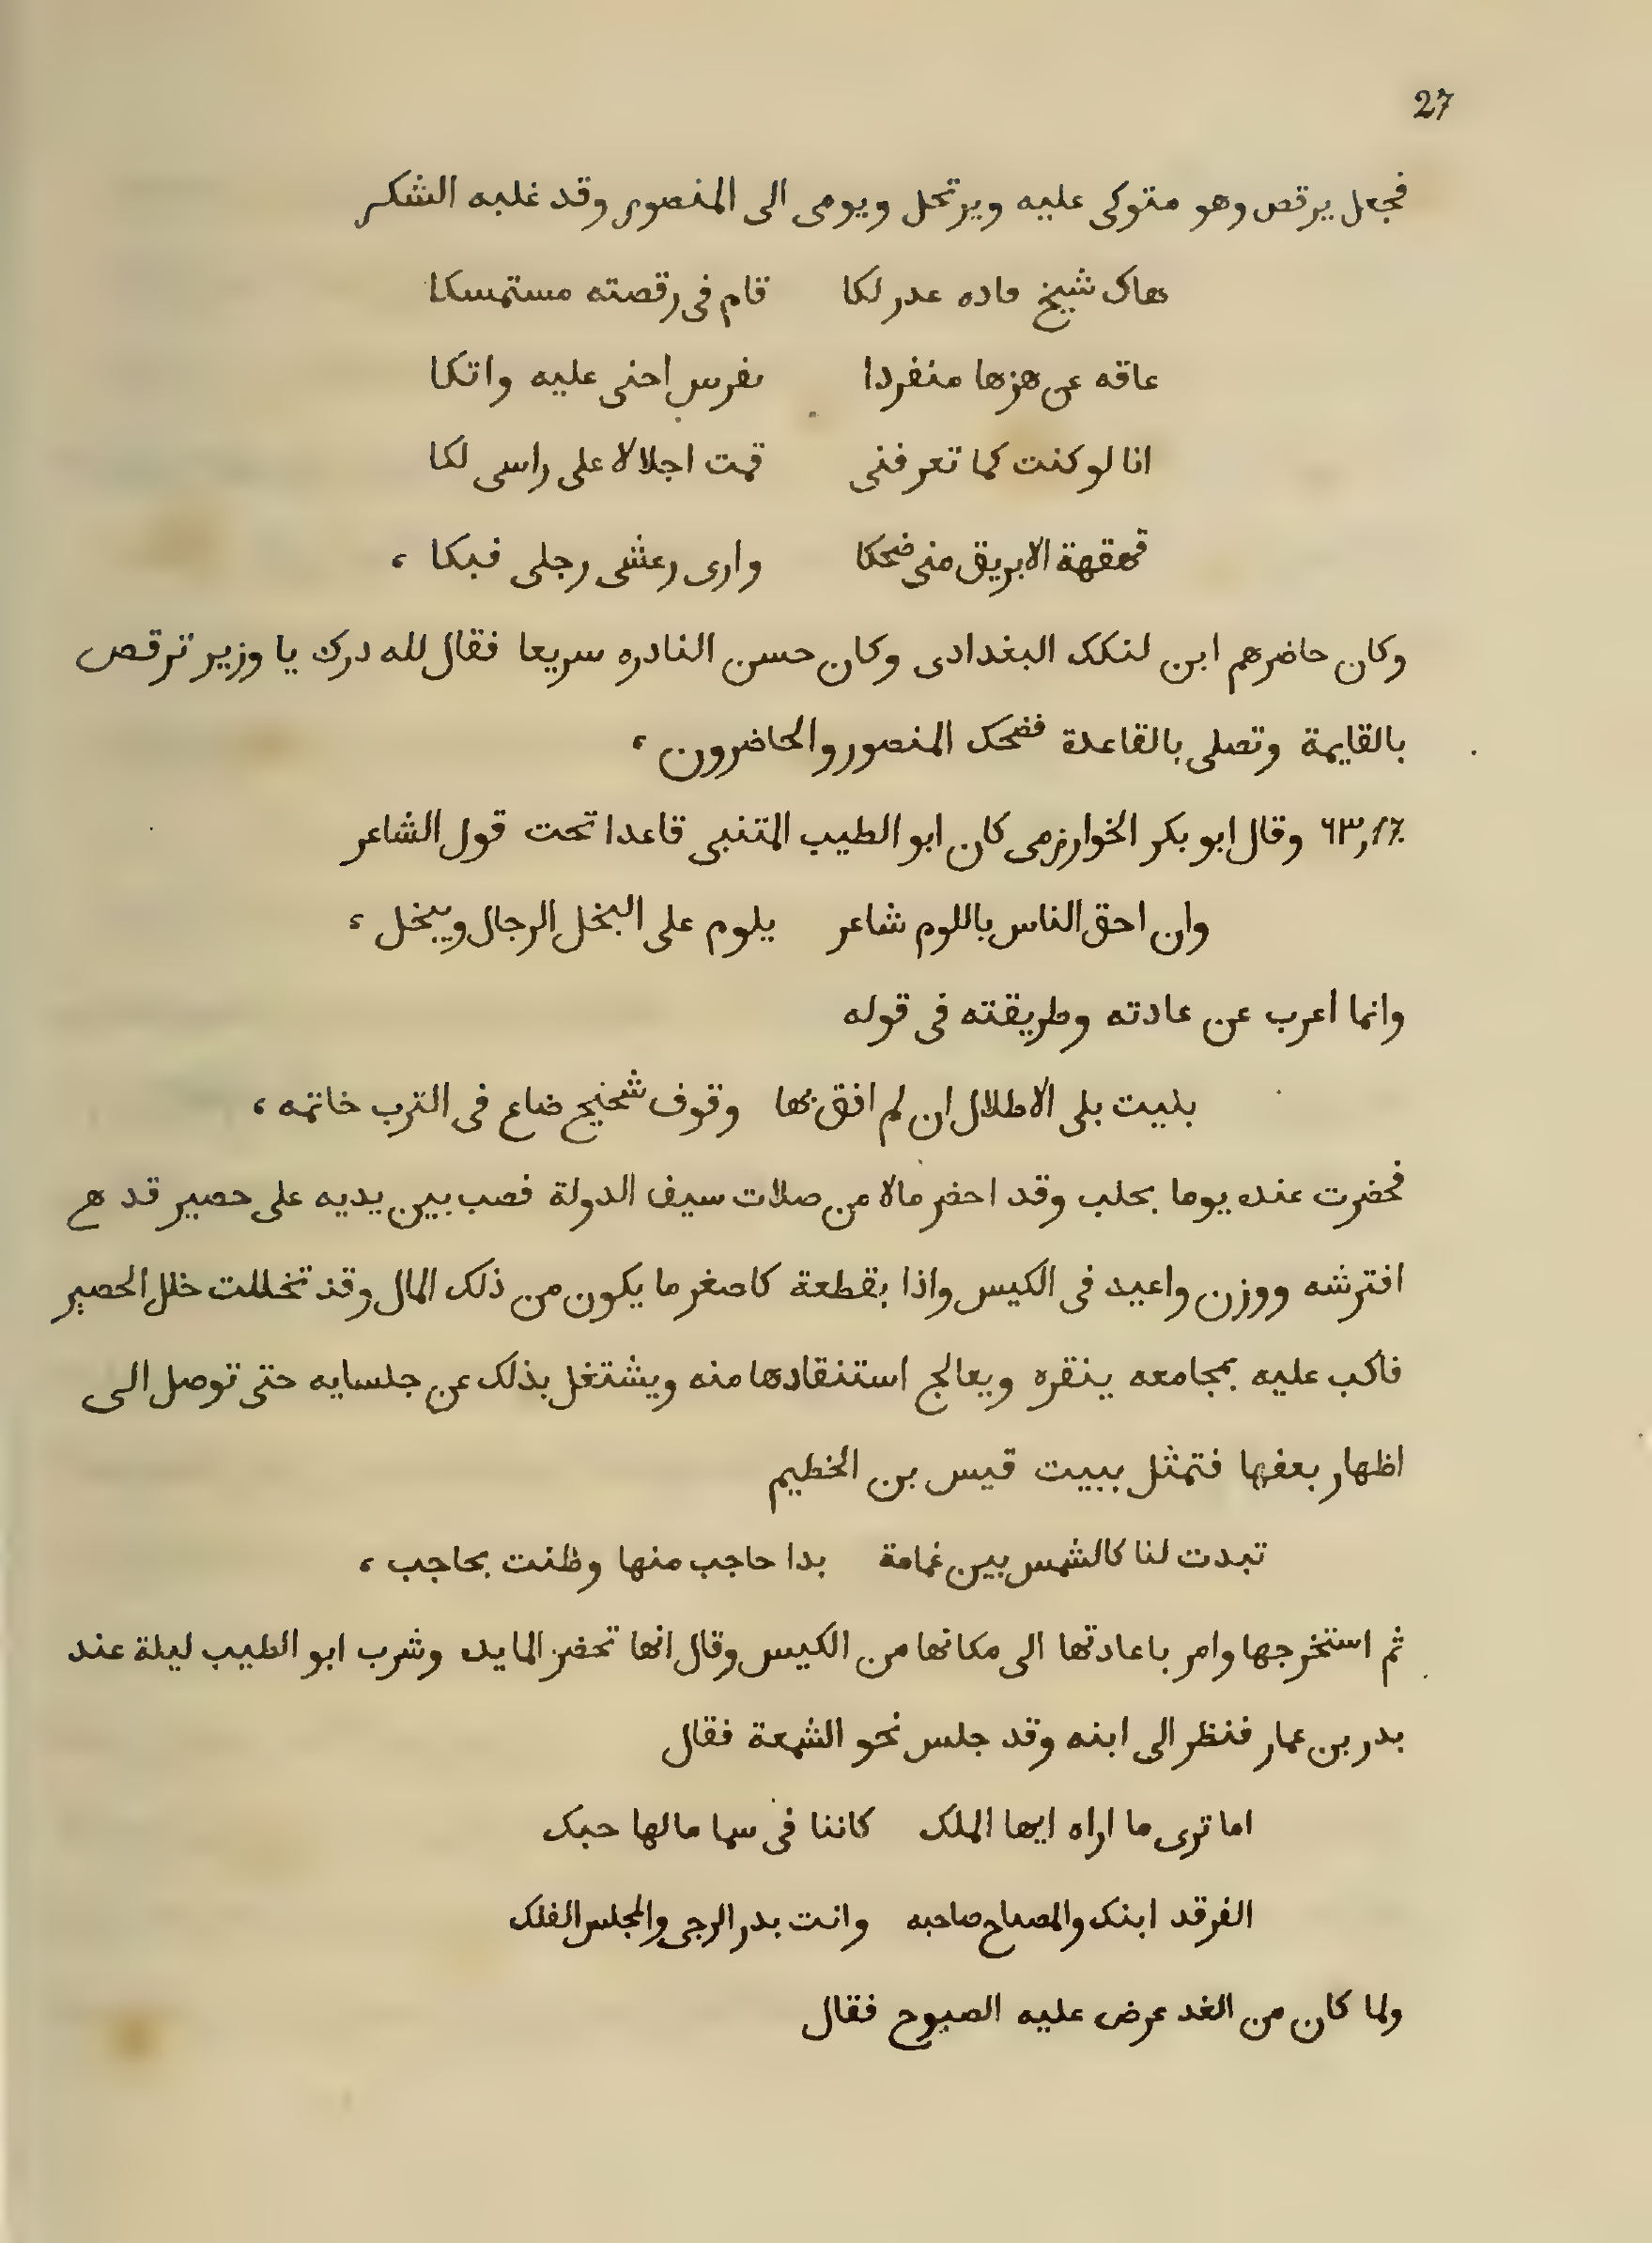 27
فجعل يرقص وهو متوكى عليه ويرتحل ويومى الى المنصور وقد غلبه الشكر
هاك شيخ قاده عدر لكا قام فى رقصته مستمسكا
عاقه عن هزها منفردا نفرس احنى عليه واتكا
انا لو كنت كما تعرفنى قمت اجلالا على راسى لكا
قهقهة الابريق منى ضحكا وارى رعشى رجلى فبكا ،
وكان حاضرهم ابن لنكك البغدادى وكان حسن النادره سريعا فقال لله درك يا وزير ترقص
بالقايمة وتصلى بالقاعدة فضحك المنصور والحاضرون ،
وقال ابو بكر الخوارزمى كان ابو الطيب المتنبى قاعدا تحت قول الشاعر
وان احق الناس باللوم شاعر يلوم على البخل الرجال ويبخل ،
وانما اعرب عن عادته وطريقته فى قوله
بليت بلى الاطلال ان لم اقف بها وقوف شحيح ضاع فى الترب خاتمه ،
فحضرت عنده يوما بحلب وقد احضر مالا من صلات سيف الدولة فصب بين يديه على حصير قد هح
افترشه ووزن واعيد فى الكيس واذا بقطعة كاصغر ما يكون من ذلك المال وقد تخللت خلل الحصير
فاكب عليه بمجامعه ينقره ويعالج استنقادها منه ويشتغل بذلك عن جلسايه حتى توصل الى
اظهار بعضها فتمثل ببيت قيس بن الخطيم
تبدت لنا كالشمس بين غمامة بدا حاجب منها وظنت بحاجب ،
ثم استخرجها وامر باعادتها الى مكانها من الكيس وقال انها تحضر المايده وشرب ابو الطيب ليلة عند
بدر بن عمار فنظر الى ابنه وقد جلس نحو الشمعة فقال
اما ترى ما اراه ايها الملك كاننا فى سما مالها حبك
الفرقد ابنك والمصباح صاحبه وانت بدر الرجى والمجلس الفلك
ولما كان من الغد عرض عليه الصبوح فقال